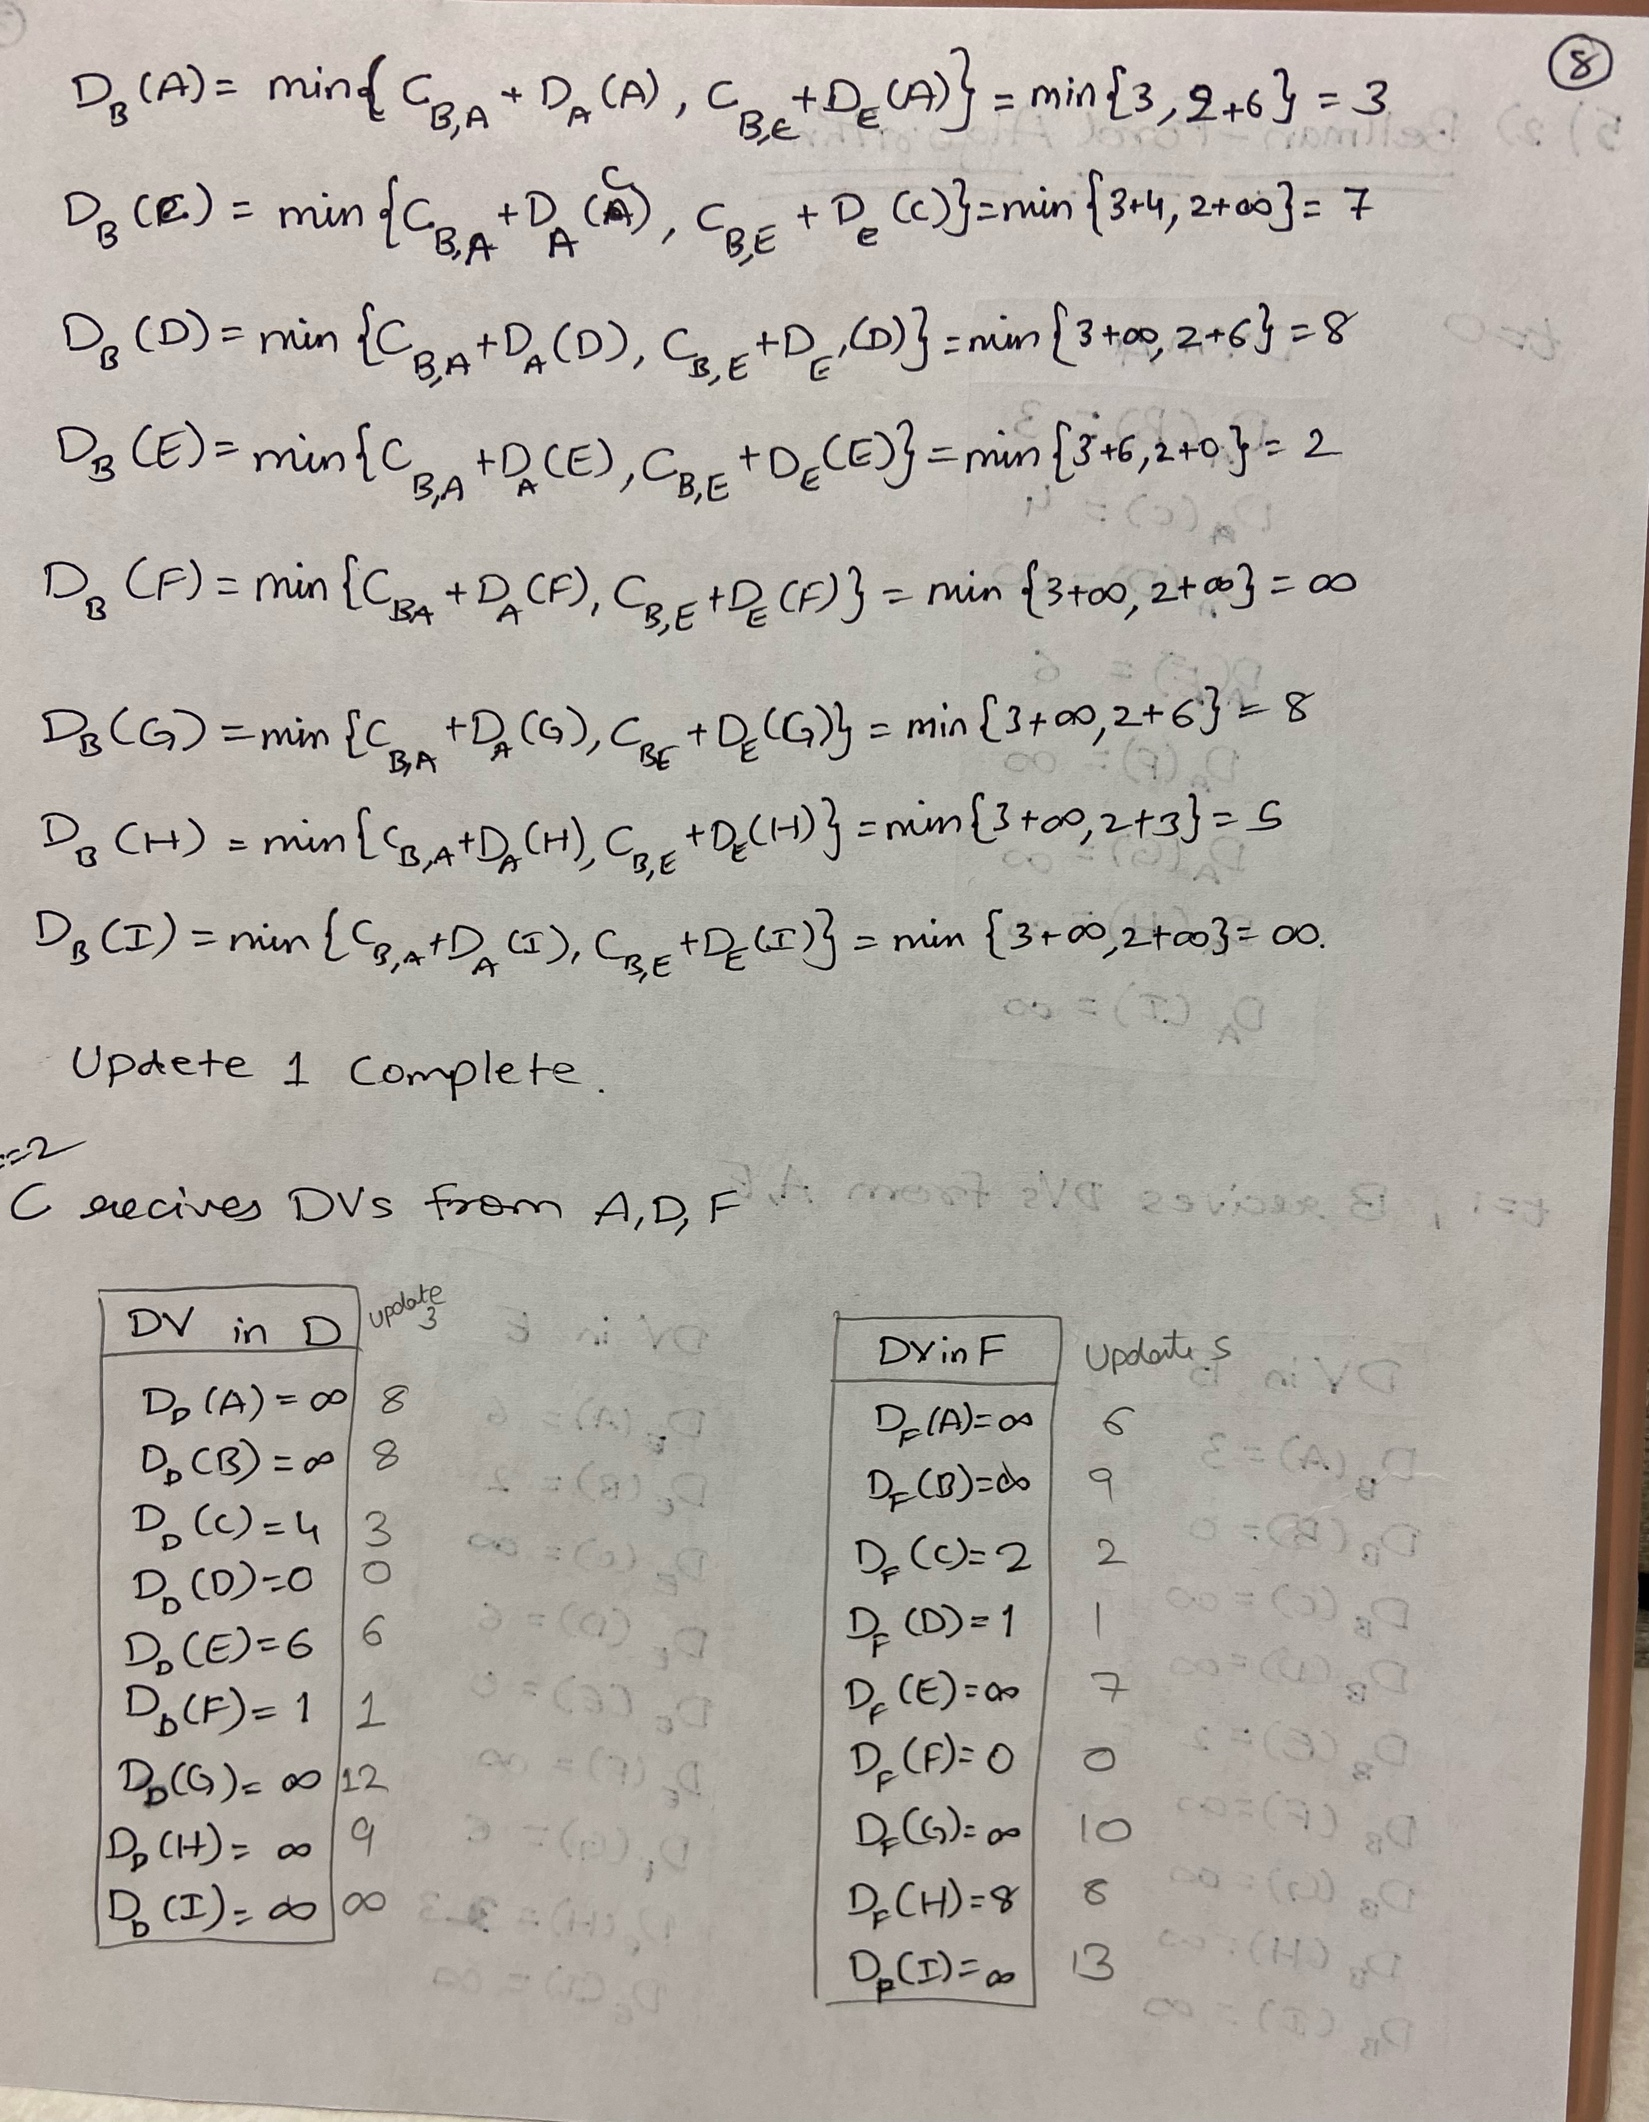 8
D_B (A) = min{ C_B,A + D_A (A), C_B,E + D_E (A)} = min{3, 2+6} = 3
D_B (C) = min {C_B,A + D_A (C), C_B,E + D_e (C)} = min {3+4, 2+∞} = 7
D_B (D) = min {C_B,A + D_A (D), C_B,E + D_E (D)} = min {3+∞, 2+6} = 8
D_B (E) = min{C_B,A + D_A (E), C_B,E + D_E (E)} = min {3+6, 2+0} = 2
D_B (F) = min{C_BA + D_A (F), C_B,E + D_E (F)} = min {3+∞, 2+∞} = ∞
D_B (G) = min {C_B,A + D_A (G), C_BE + D_E (G)} = min {3+∞, 2+6} = 8
D_B (H) = min {C_B,A + D_A (H), C_B,E + D_E (H)} = min{3+∞, 2+3} = 5
D_B (I) = min {C_B,A + D_A (I), C_B,E + D_E (I)} = min {3+∞, 2+∞} = ∞.
Updete 1 Complete.
=2
C recives DVs from A, D, F
DV in D update 3
D_D (A) = ∞ 8
D_D (B) = ∞ 8
D_D (C) = 4 3
D_D (D) = 0 0
D_D (E) = 6 6
D_D (F) = 1 1
D_D (G) = ∞ 12
D_D (H) = ∞ 9
D_D (I) = ∞ ∞
DV in F Update 5
D_F (A) = ∞ 6
D_F (B) = ∞ 9
D_F (C) = 2 2
D_F (D) = 1 1
D_F (E) = ∞ 7
D_F (F) = 0 0
D_F (G) = ∞ 10
D_F (H) = 8 8
D_F (I) = ∞ 13